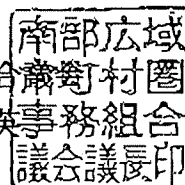 南部広域
町村圏
事務組合
議会議長印